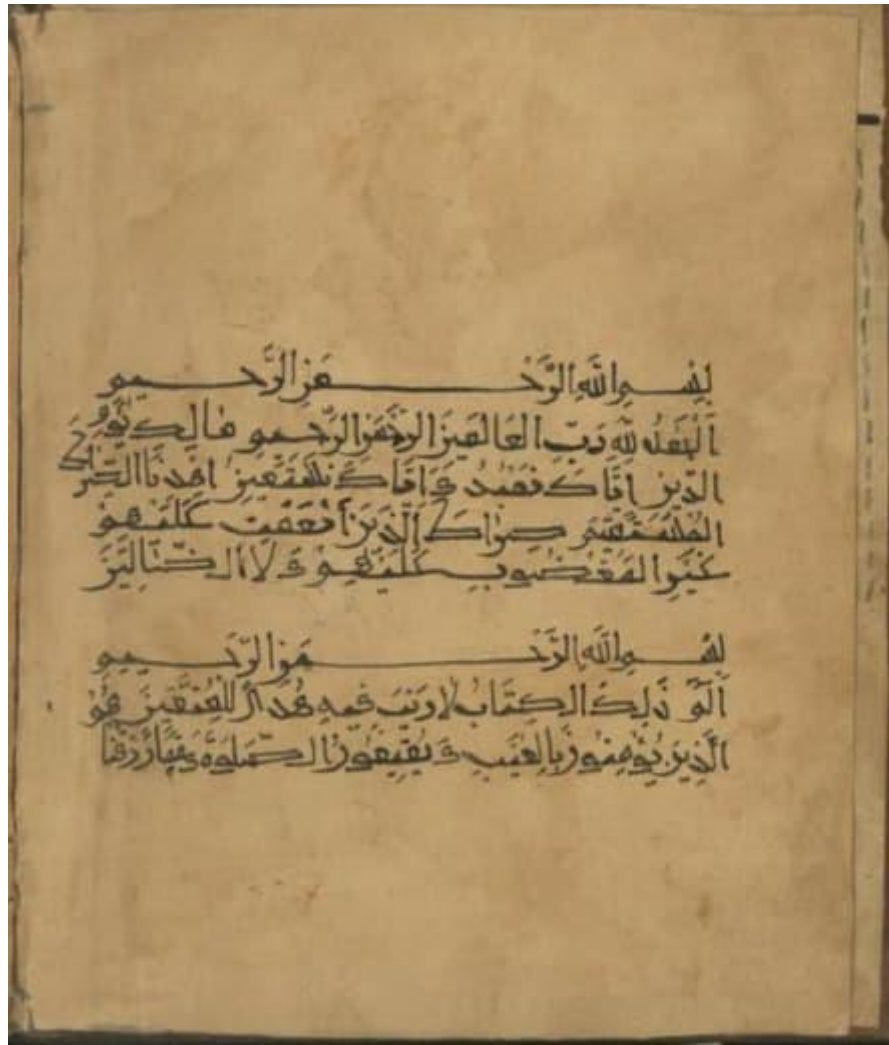 بسم الله الرحمن الرحيم
الحمد لله رب العالمين الرحمن الرحيم مالك يوم
الدين اياك نعبد و اياك نستعين اهدنا الصراط
المستقيم صراط الذين أنعمت عليهم
غير المغضوب عليهم و لا الضالين
بسم الله الرحمن الرحيم
الم ذلك الكتاب لا ريب فيه هدا للمتقين
الذين يؤمنون بالغيب و يقيمون الصلوة و مما رزقنا